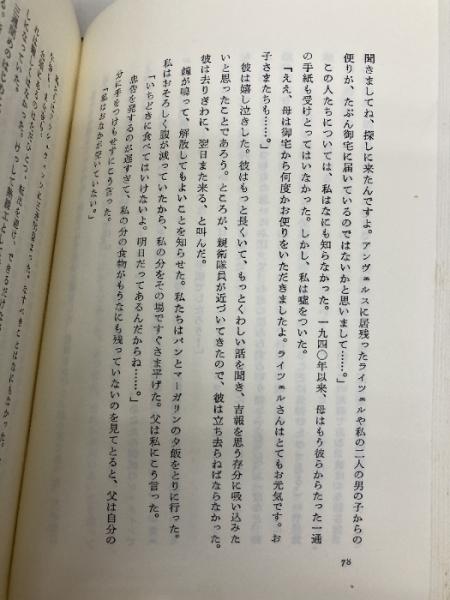 78
聞きましてね、探しに来たんですよ。アンヴェルスに居残ったライツェルや私の二人の男の子からの
便りが、たぶん御宅に届いているのではないかと思いまして……。」
この人たちについては、私はなにも知らなかった。一九四〇年以来、母はもう彼らからたった一通
の手紙も受けとってはいなかった。しかし、私は嘘をついた。
「ええ、母は御宅から何度かお便りをいただきましたよ。ライツェルさんはとてもお元気です。お
子さまたちも……。」
彼は嬉し泣きした。彼はもっと長くいて、もっとくわしい話を聞き、吉報を思う存分に吸い込みた
いと思ったことであろう。ところが、親衛隊員が近づいてきたので、彼は立ち去らねばならなかった。
彼は去りぎわに、翌日また来る、と叫んだ。
鐘が鳴って、解散してもよいことを知らせた。私たちはパンとマーガリンの夕飯をとりに行った。
私はおそろしく腹が減っていたから、私の分をその場ですぐさま平げた。父は私にこう言った。
「いちどきに食べてはいけないよ。明日だってあるんだからね……。」
忠告を発するのが遅すぎて、私の分の食物がもうなにも残っていないのを見てとると、父は自分の
分に手をつけもせずにこう言った。
「私はおなかが空いていない。」